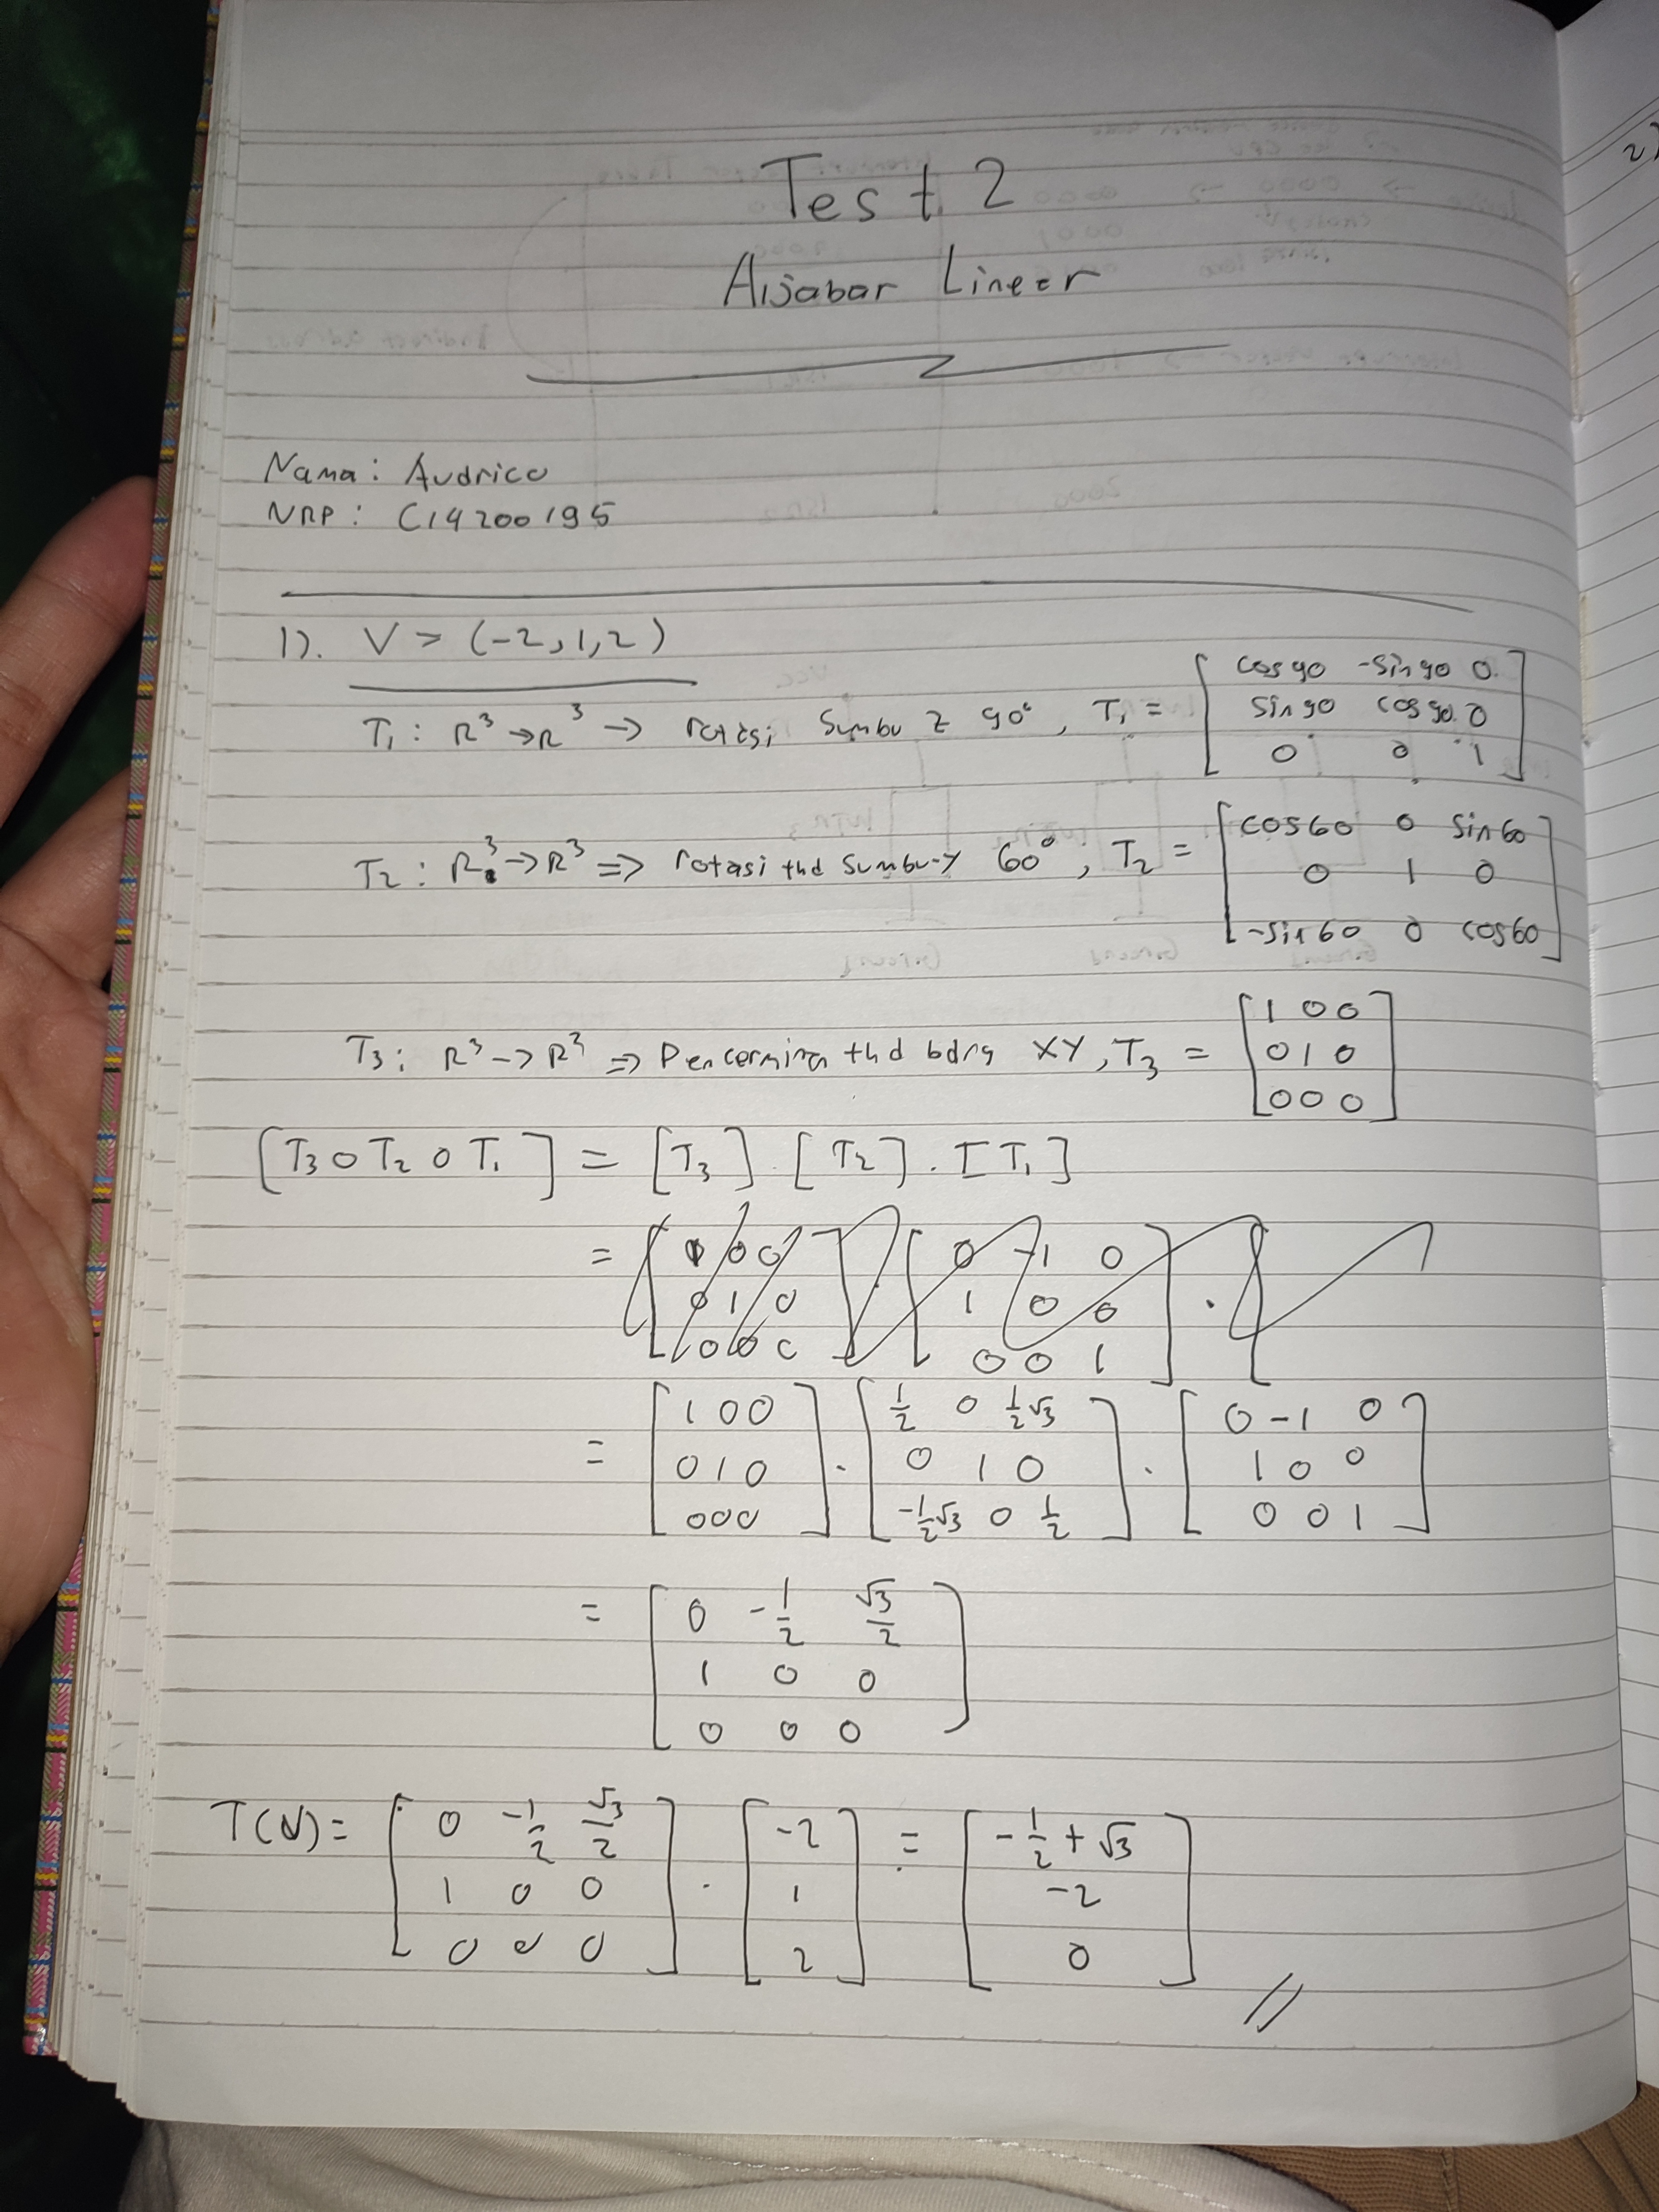 Test 2
Aljabar Linear
Nama: Audrico
NRP: C14200195
1). V = (-2,1,2)
T₁ : R³ → R³ → rotasi sumbu z 90°, T₁ = [cos90 -sin90 0; sin90 cos90 0; 0 0 1]
T₂ : R³ → R³ => rotasi thd sumbu-y 60°, T₂ = [cos60 0 sin60; 0 1 0; -sin60 0 cos60]
T₃ : R³ -> R³ => Pencerminan thd bdng XY, T₃ = [1 0 0; 0 1 0; 0 0 0]
[T₃ o T₂ o T₁] = [T₃] . [T₂] . [T₁]
= [1 0 0; 0 1 0; 0 0 0] . [0 -1 0; 1 0 0; 0 0 1] . [
= [1 0 0; 0 1 0; 0 0 0] . [1/2 0 1/2√3; 0 1 0; -1/2√3 0 1/2] . [0 -1 0; 1 0 0; 0 0 1]
= [0 -1/2 √3/2; 1 0 0; 0 0 0]
T(V) = [0 -1/2 √3/2; 1 0 0; 0 0 0] . [-2; 1; 2] = [-1/2 + √3; -2; 0] //